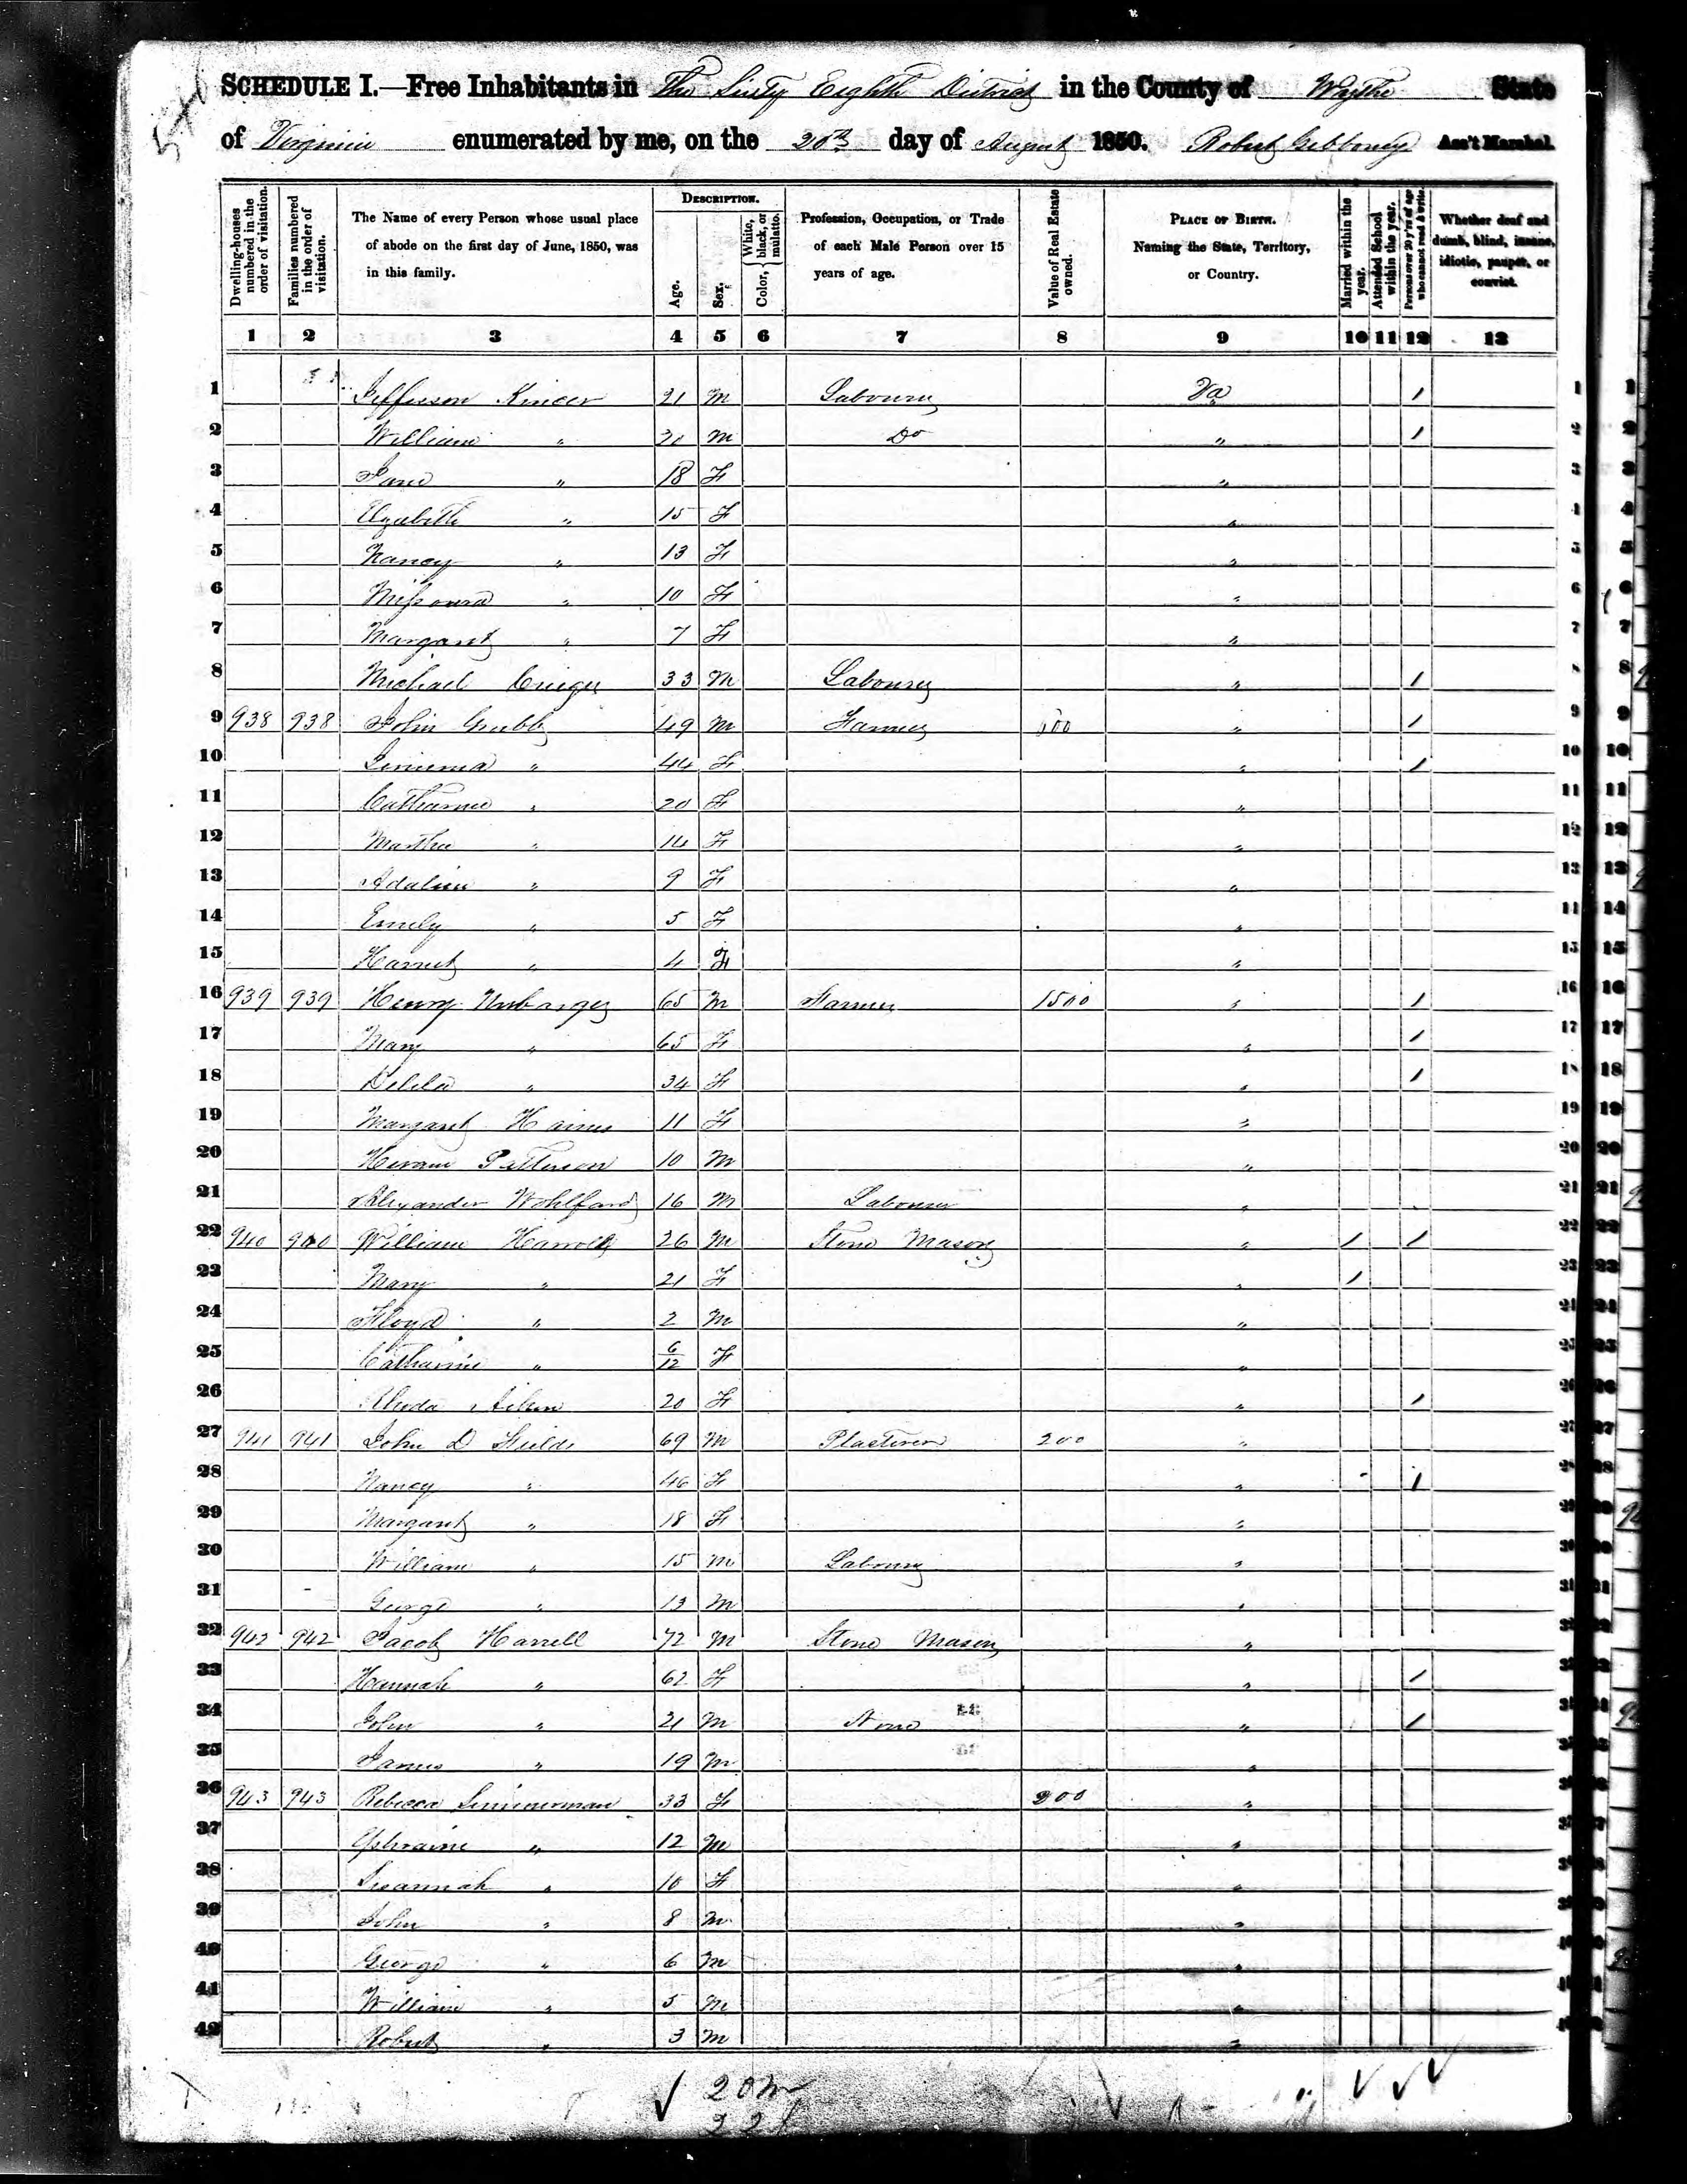 SCHEDULE I.—Free Inhabitants in The Sixty Eighth District in the County of Wythe State
of Virginia enumerated by me, on the 20th day of August 1850. Robert Gibboney Ass't Marshal.
Dwelling-houses numbered in the order of visitation.
Families numbered in the order of visitation.
The Name of every Person whose usual place of abode on the first day of June, 1850, was in this family.
DESCRIPTION.
Age.
Sex.
Color, White, black, or mulatto.
Profession, Occupation, or Trade of each Male Person over 15 years of age.
Value of Real Estate owned.
PLACE OF BIRTH. Naming the State, Territory, or Country.
Married within the year.
Attended School within the year.
Persons over 20 y'rs of age who cannot read & write.
Whether deaf and dumb, blind, insane, idiotic, pauper, or convict.
1 2 3 4 5 6 7 8 9 10 11 12 13
1 Jefferson Kinder 21 M Labourer Va 1
2 William " 20 M Do " 1
3 Jane " 18 F "
4 Elizabeth " 15 F "
5 Nancy " 13 F "
6 Missoura " 10 F "
7 Margaret " 7 F "
8 Michael 33 M Labourer " 1
9 938 938 John Grubb 49 M Farmer "  1
10 " 44 F " 1
11 Catharine " 20 F "
12 Martha " 14 F "
13 Adaline " 9 F "
14 Emily " 5 F "
15 Harriet " 4 F "
16 939 939 Henry Umbarger 65 M Farmer 1500 " 1
17 Mary " 65 F " 1
18 Delila " 34 F " 1
19 Margaret Haines 11 F "
20 Hiram Patterson 10 M "
21 Alexander Wohlford 16 M Labourer "
22 940 940 William Harrold 26 M Stone Mason " 1 1
23 Mary " 21 F " 1
24 Floyd " 2 M "
25 Catharine " 6/12 F "
26 Rhoda 20 F " 1
27 941 941 John D Fields 69 M Plasterer 200 "
28 Nancy " 46 F " 1
29 Margaret " 18 F "
30 William " 15 M Labourer "
31 George " 13 M "
32 942 942 Jacob Harrell 72 M Stone Mason "
33 Hannah " 62 F " 1
34 John " 21 M None " 1
35 James " 19 M "
36 943 943 Rebecca Simmerman 33 F 200 "
37 Ephraim " 12 M "
38 Susannah " 10 F "
39 John " 8 M "
40 George " 6 M "
41 William " 5 M "
42 Robert " 3 M "
20 m
22 f